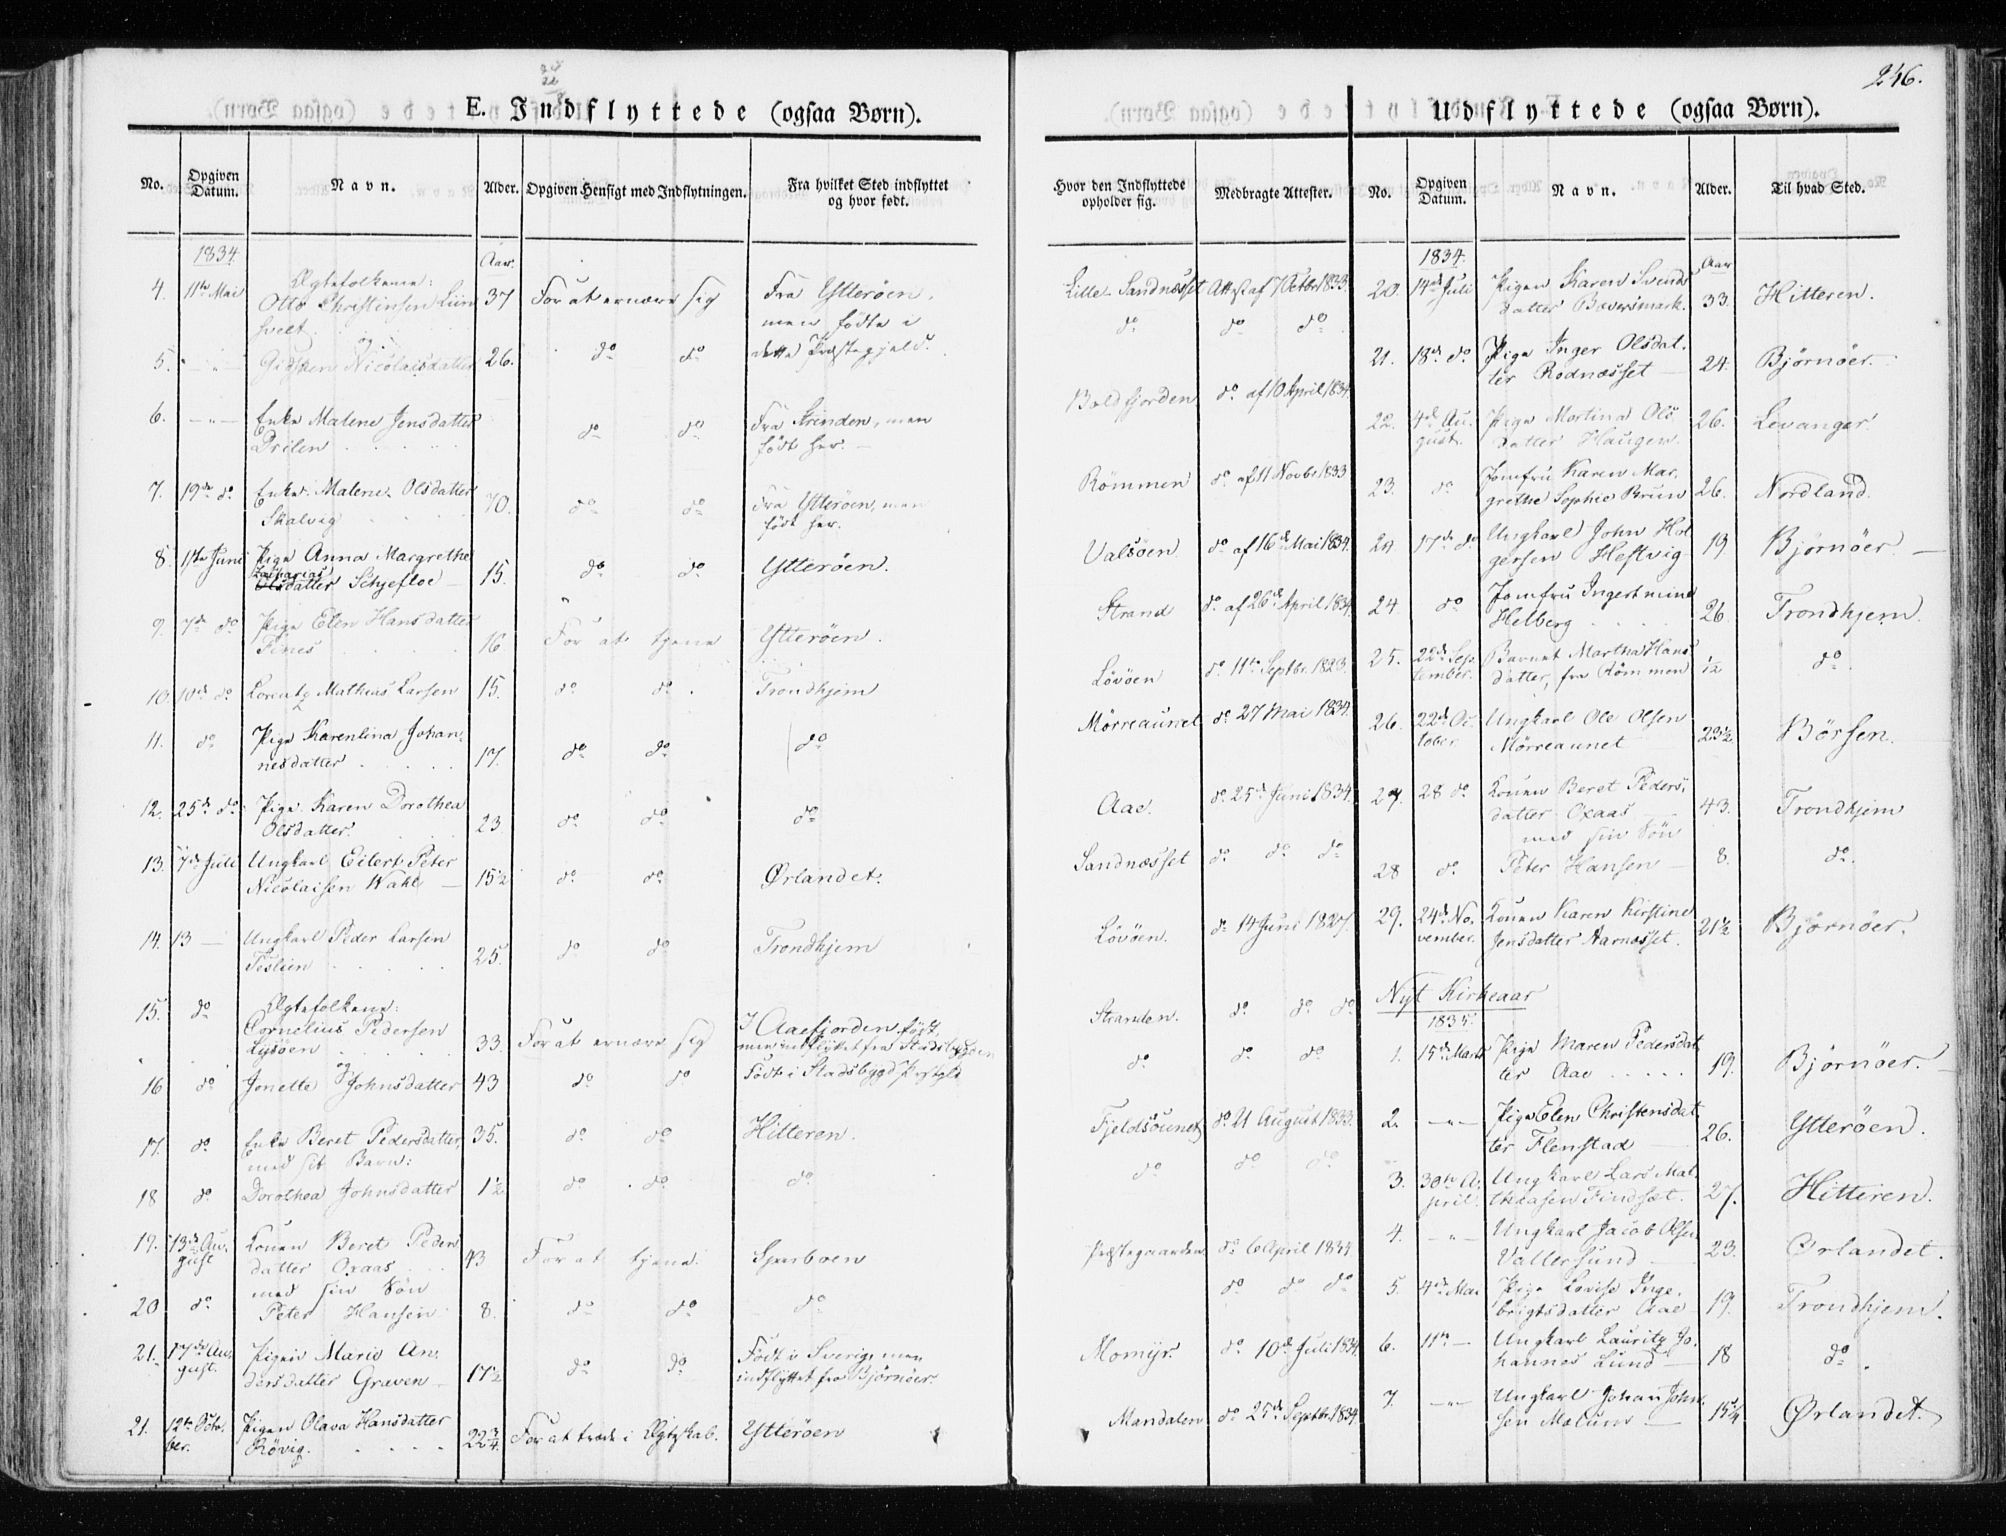 246.
E. Indflyttede (ogsaa Børn).
No.
Opgiven Datum.
Navn.
Alder.
Opgiven Hensigt med Indflytningen.
Fra hvilket Sted indflyttet og hvor født.
1834
Aar.
4. 11te Mai Ægtefolkene:
Otto Christensen 37 For at ernære sig Fra Ytterøen,
men fødte i
og dette Præstegjeld.
5. -"- Nicolaisdatter 26. do do
6. -"- Enke Malene Jensdatter do do Fra Strinden, men
født her. -
7. 19de do Enke Malene Olsdatter 70. do do Fra Ytterøen, men
Skalvig født her.
8. 1ste Juni Pige Anna Margrethe
Zacharias
Olsdatter Schjefloe 15. do do Ytterøen.
9. 7de do Pige Elen Hansdatter
Fines 16 For at tjene Ytterøen.
10. 10de do Lorentz Mathias Larsen 15. do do Trondhjem
11. do Pige Karenlina Johan-
nesdatter 17. do do do
12. 25de do Pige Karen Dorothea
Olsdatter. 23 do do do
13. 7de Juli Ungkarl Eilert Peter
Nicolaisen Wahl 15½ do do Ørlandet.
14. 13 - Ungkarl Peder Larsen
25. do do Trondhjem
15. do Ægtefolkene:
Cornelius Pedersen
Lysøen 33. For at ernære sig I Aaefjorden født,
men indflyttet fra Stadsbygden
og
16 do Jonetta Johnsdatter 43 do do Født i Stadsbygd
17. do Enke Beret Pedersdatter, 35. do do Hitteren.
med sit Barn:
18 do Dorothea Johnsdatter 1½ do do do
19. 13de Au-
gust Konen Beret Peders
datter Oxaas 43 For at tjene Sparboen
med sin Søn
20 do Peter Hansen 8. do do do
21. 17de Au-
gust. Pigen Maria An-
dersdatter Graven 17½ do do Født i Sverig, men
indflyttet fra Bjørnøer.
21. 12te Octo-
ber. Pigen Olava Hansdatter
Røvig. 22¾ For at træde i Ægteskab. Ytterøen
Hvor den Indflyttede opholder sig.
Medbragte Attester.
Lille Sandnæsset Attest af 7 Octbr 1833.
do do do
Boldfjorden do af 10 April 1834.
Rømmen do af 11 Novbr 1833
Valsøen do af 16de Mai 1834.
Strand do af 26de April 1834.
Løvøen do 11te Septbr. 1823.
Mørreaunet do 27 Mai 1834.
Aae. do 25de Juni 1834.
Sandnæsset do do do
Løvøen. do 14 Juni 1827.
Stranden. do do do
do do do
Fjeldsøunet do 21 August 1833.
do do do
Præstegaarden do 6 April 1834
do do do
Momyr. do 10de Juli 1834.
Mandalen do 27de Septbr. 1834.
Udflyttede (ogsaa Børn).
No.
Opgiven Datum.
Navn.
Alder.
Til hvad Sted.
1834.
Aar
20. 14de Juli Pigen Karen Svends
datter Bæversmark. 33. Hitteren.
21. 18de do Pige Inger Olsdat-
ter Rodnæsset 24. Bjørnøer.
22. 4de Au-
gust. Pige Martina Ols
datter Haugen. 26. Levanger
23. do Jomfru Karen Mar-
grethe Sophie Bruun 26. Nordland.
24 17de do Ungkarl John Hol-
gersen Hestvig 19 Bjørnøer. -
24. do Jomfru Ingertmine
Helberg 26 Trondhjem.
25. 22de Sep-
tember. Barnet Martha Hans
datter, fra Rømmen ½ do
26. 22de Oc-
tober. Ungkarl Ole Olsen
Mørreaunet 23½ Børsen.
27. 28 do Konen Beret Peders-
datter Oxaas 43. Trondhjem
med sin Søn
28 do Peter Hansen 8. do.
29. 24de No-
vember. Konen Karen Kirstine
Jensdatter Aarnæsset. 21½ Bjørnøer.
Nyt Kirkeaar
1835.
1. 15de Marts Pige Maren Pedersdat
ter Aae 19. Bjørnøer.
2. -"- Pige Elen Christensdat
ter Flenstad 26. Ytterøen.
3. 30te A-
pril. Ungkarl Lars Mat-
thiasen Findset. 27. Hitteren.
4. -"- Ungkarl Jacob Olsen
Vallersund 23. Ørlandet.
5. 4de Mai Pige Lovise Inge-
brigtsdatter Aae 19. Trondhjem.
6. 11te - Ungkarl Lauritz Jo-
hannes Lund 18 do.
7. -"- Ungkarl Johan John-
sen Mælum 15¼ Ørlandet.